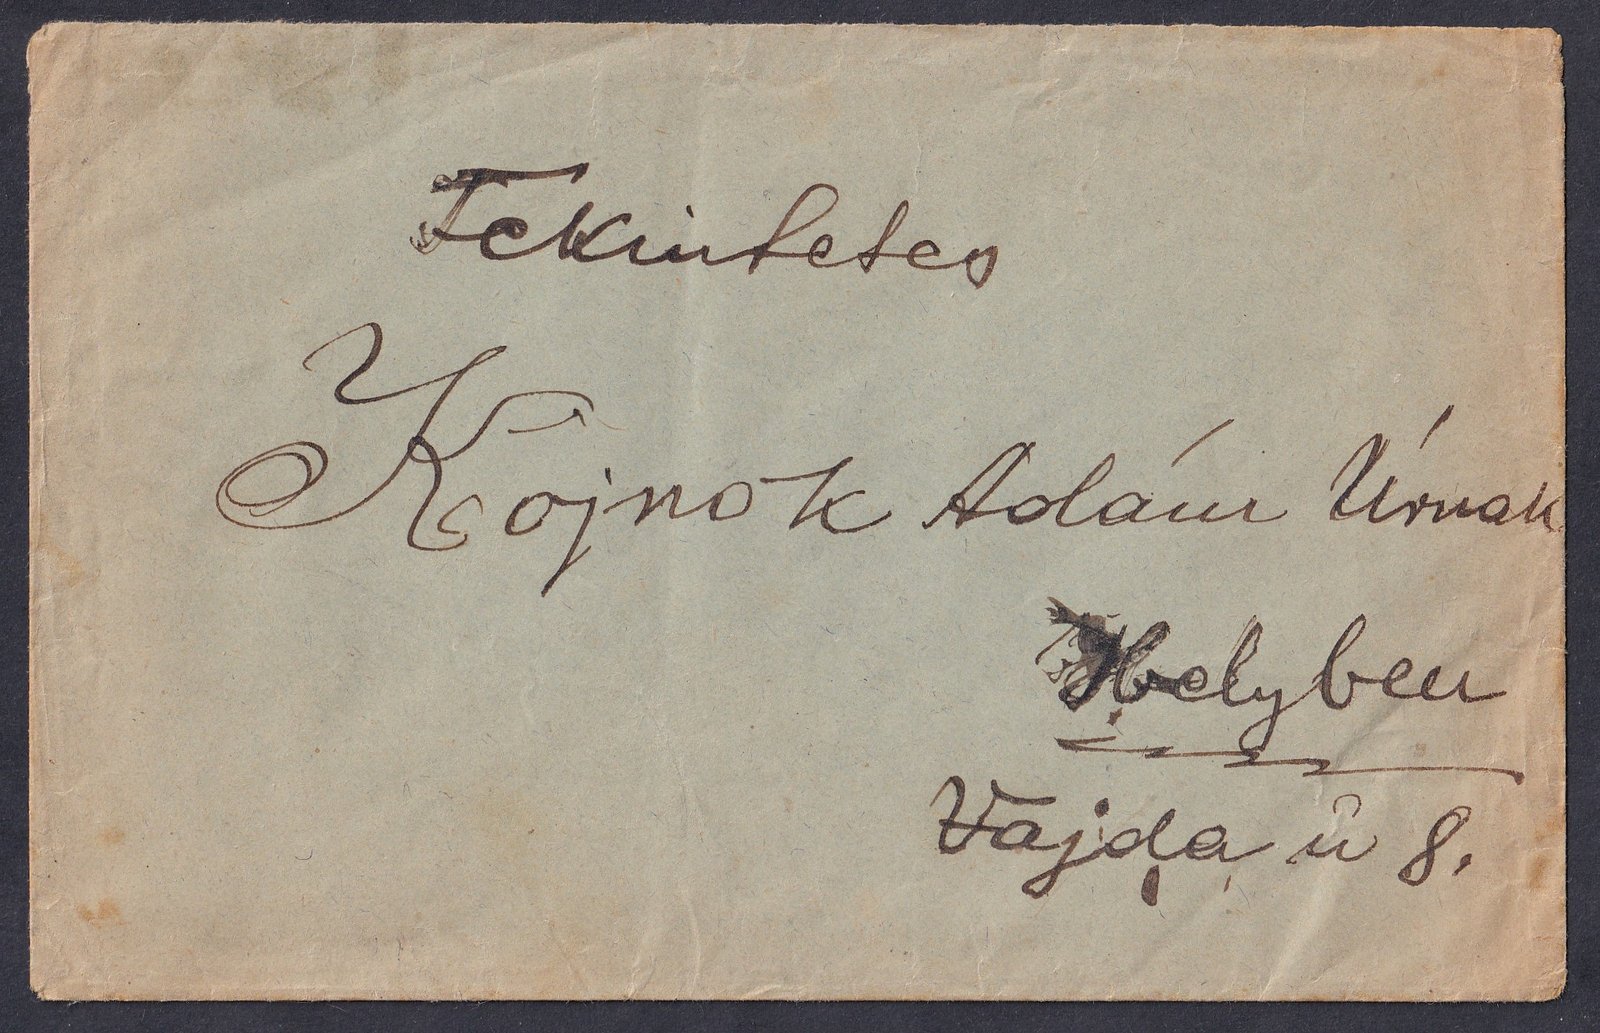 Tekintetes
Kojnok Ádám Úrnak
Helyben
Vajda u 8.